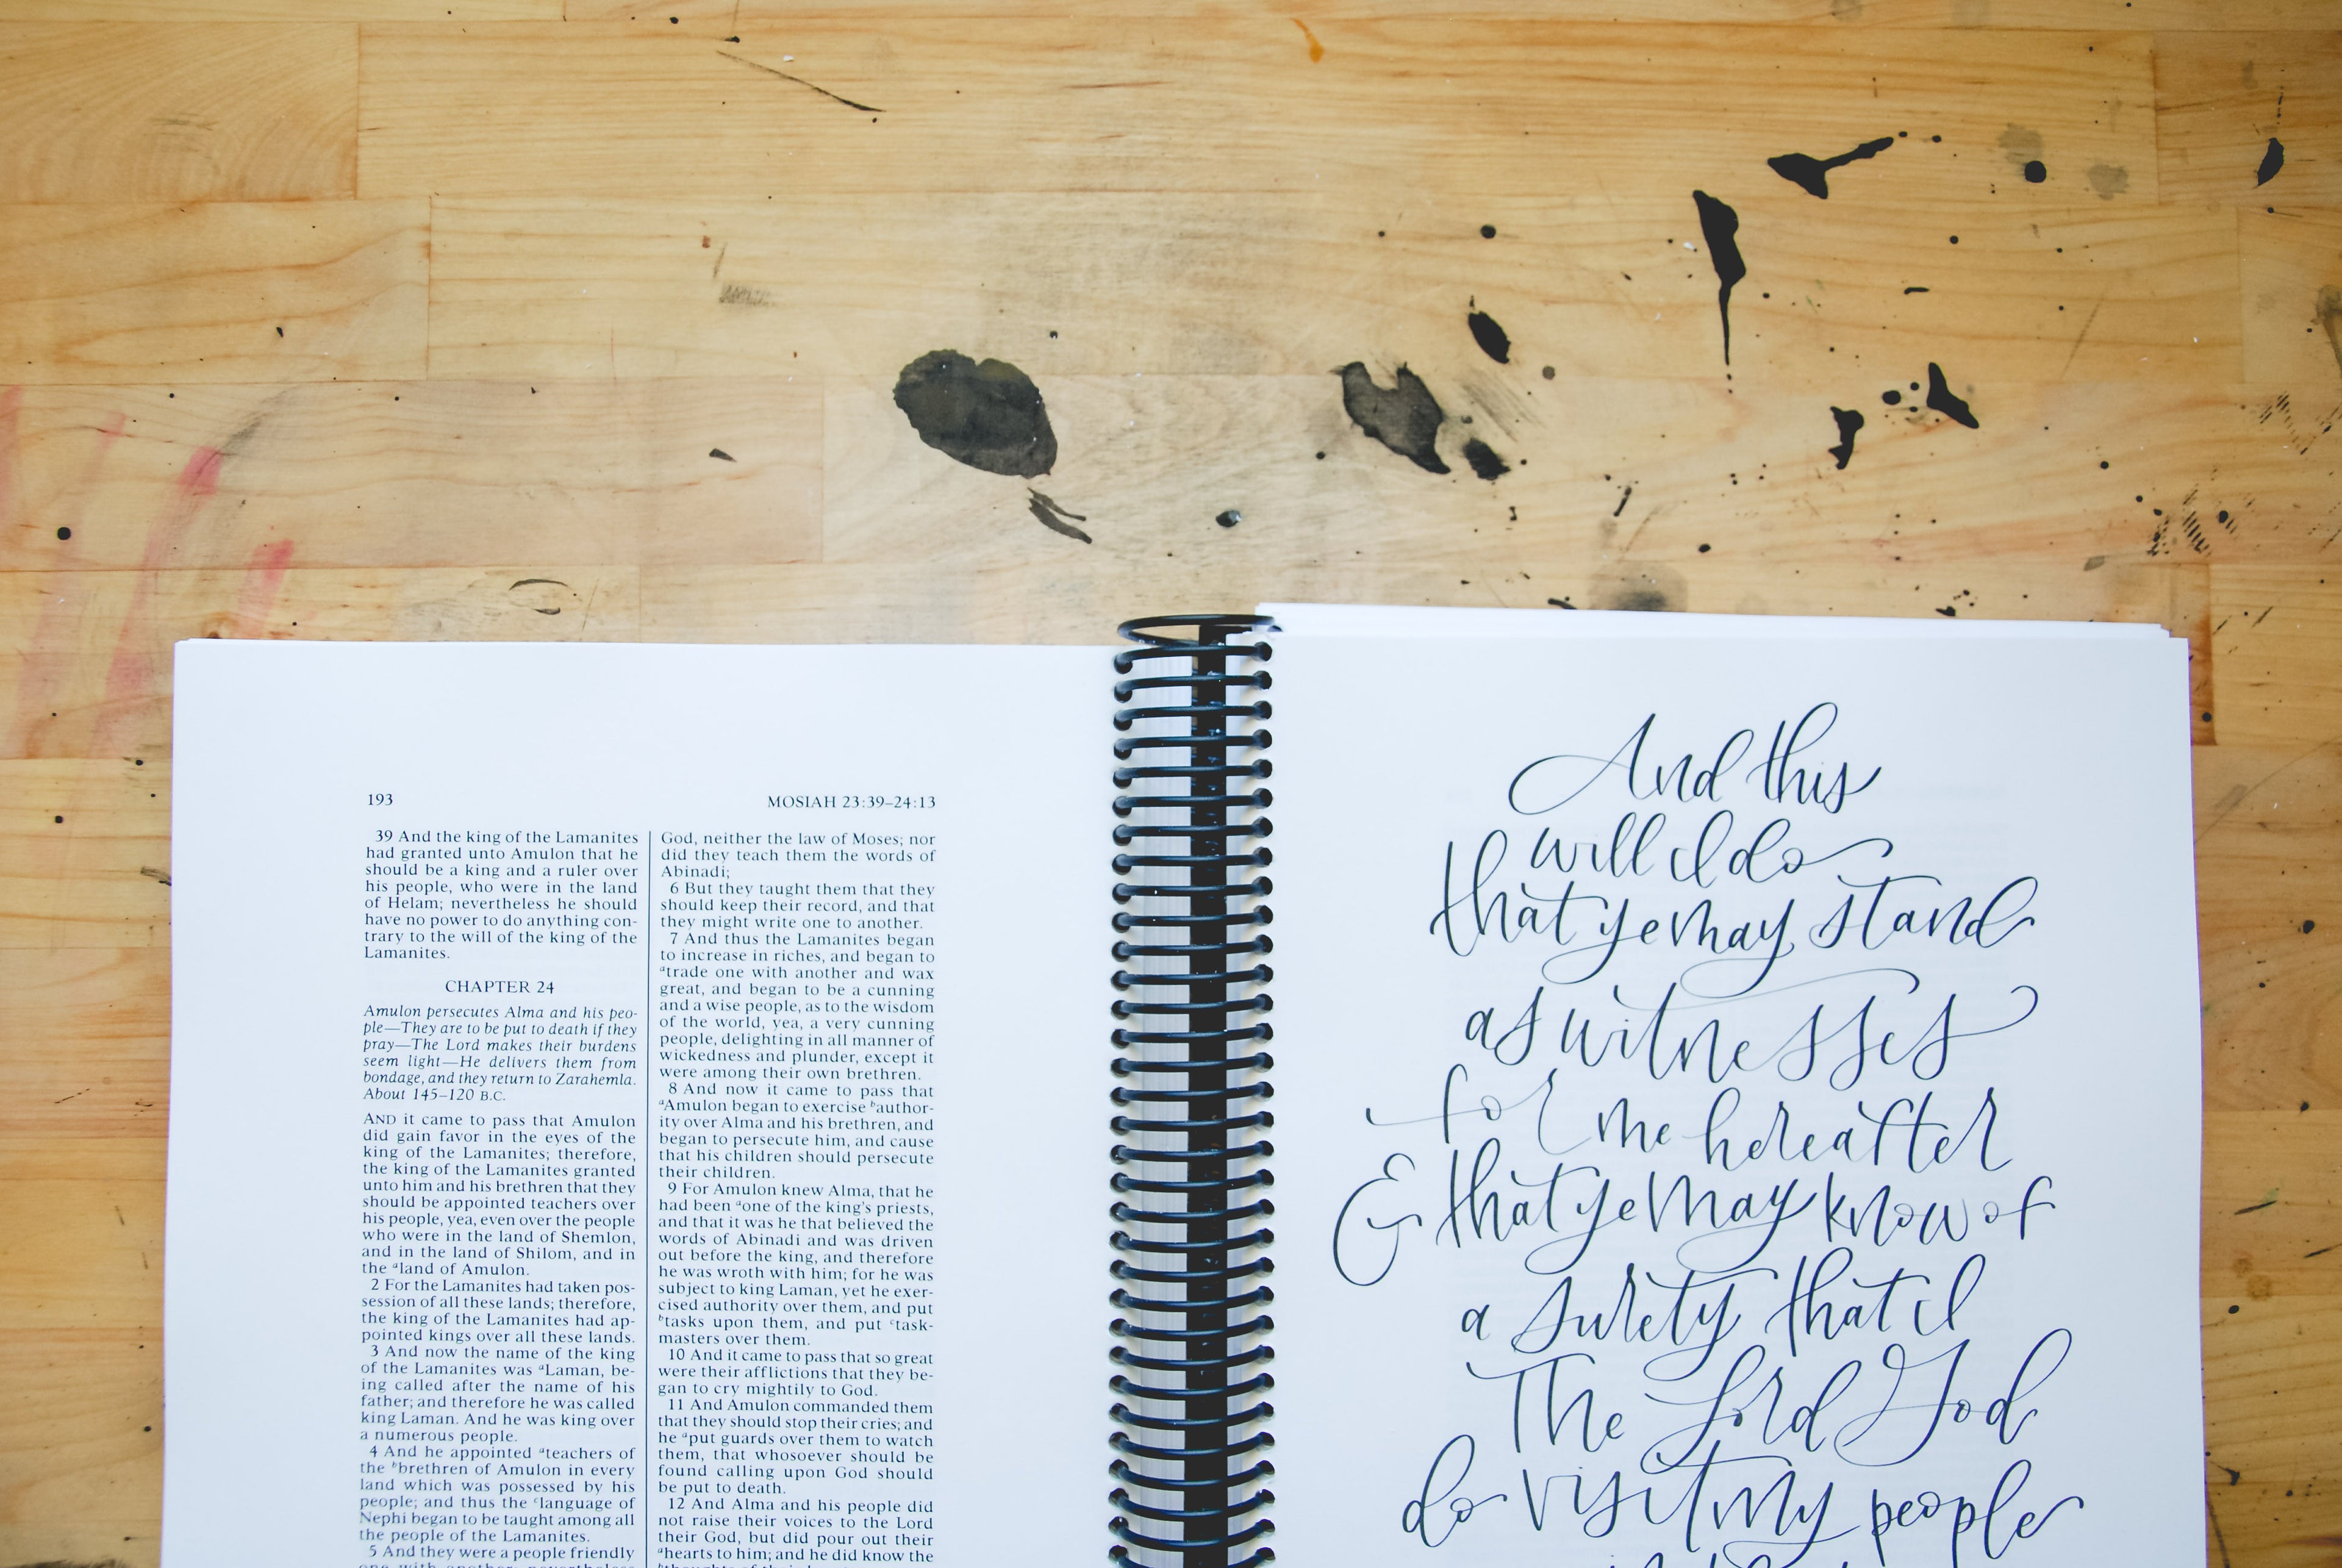 193
MOSIAH 23:39–24:13
39 And the king of the Lamanites
had granted unto Amulon that he
should be a king and a ruler over
his people, who were in the land
of Helam; nevertheless he should
have no power to do anything con-
trary to the will of the king of the
Lamanites.
CHAPTER 24
Amulon persecutes Alma and his peo-
ple—They are to be put to death if they
pray—The Lord makes their burdens
seem light—He delivers them from
bondage, and they return to Zarahemla.
About 145–120 B.C.
AND it came to pass that Amulon
did gain favor in the eyes of the
king of the Lamanites; therefore,
the king of the Lamanites granted
unto him and his brethren that they
should be appointed teachers over
his people, yea, even over the people
who were in the land of Shemlon,
and in the land of Shilom, and in
the aland of Amulon.
2 For the Lamanites had taken pos-
session of all these lands; therefore,
the king of the Lamanites had ap-
pointed kings over all these lands.
3 And now the name of the king
of the Lamanites was aLaman, be-
ing called after the name of his
father; and therefore he was called
king Laman. And he was king over
a numerous people.
4 And he appointed ateachers of
the bbrethren of Amulon in every
land which was possessed by his
people; and thus the clanguage of
Nephi began to be taught among all
the people of the Lamanites.
5 And they were a people friendly
one with another; nevertheless
God, neither the law of Moses; nor
did they teach them the words of
Abinadi;
6 But they taught them that they
should keep their record, and that
they might write one to another.
7 And thus the Lamanites began
to increase in riches, and began to
atrade one with another and wax
great, and began to be a cunning
and a wise people, as to the wisdom
of the world, yea, a very cunning
people, delighting in all manner of
wickedness and plunder, except it
were among their own brethren.
8 And now it came to pass that
aAmulon began to exercise bauthor-
ity over Alma and his brethren, and
began to persecute him, and cause
that his children should persecute
their children.
9 For Amulon knew Alma, that he
had been aone of the king's priests,
and that it was he that believed the
words of Abinadi and was driven
out before the king, and therefore
he was wroth with him; for he was
subject to king Laman, yet he exer-
cised authority over them, and put
btasks upon them, and put ctask-
masters over them.
10 And it came to pass that so great
were their afflictions that they be-
gan to cry mightily to God.
11 And Amulon commanded them
that they should stop their cries; and
he aput guards over them to watch
them, that whosoever should be
found calling upon God should
be put to death.
12 And Alma and his people did
not raise their voices to the Lord
their God, but did pour out their
ahearts to him; and he did know the
And this
will I do
that ye may stand
as witnesses
for me hereafter
& that ye may know of
a surety that I
The Lord God
do visit my people